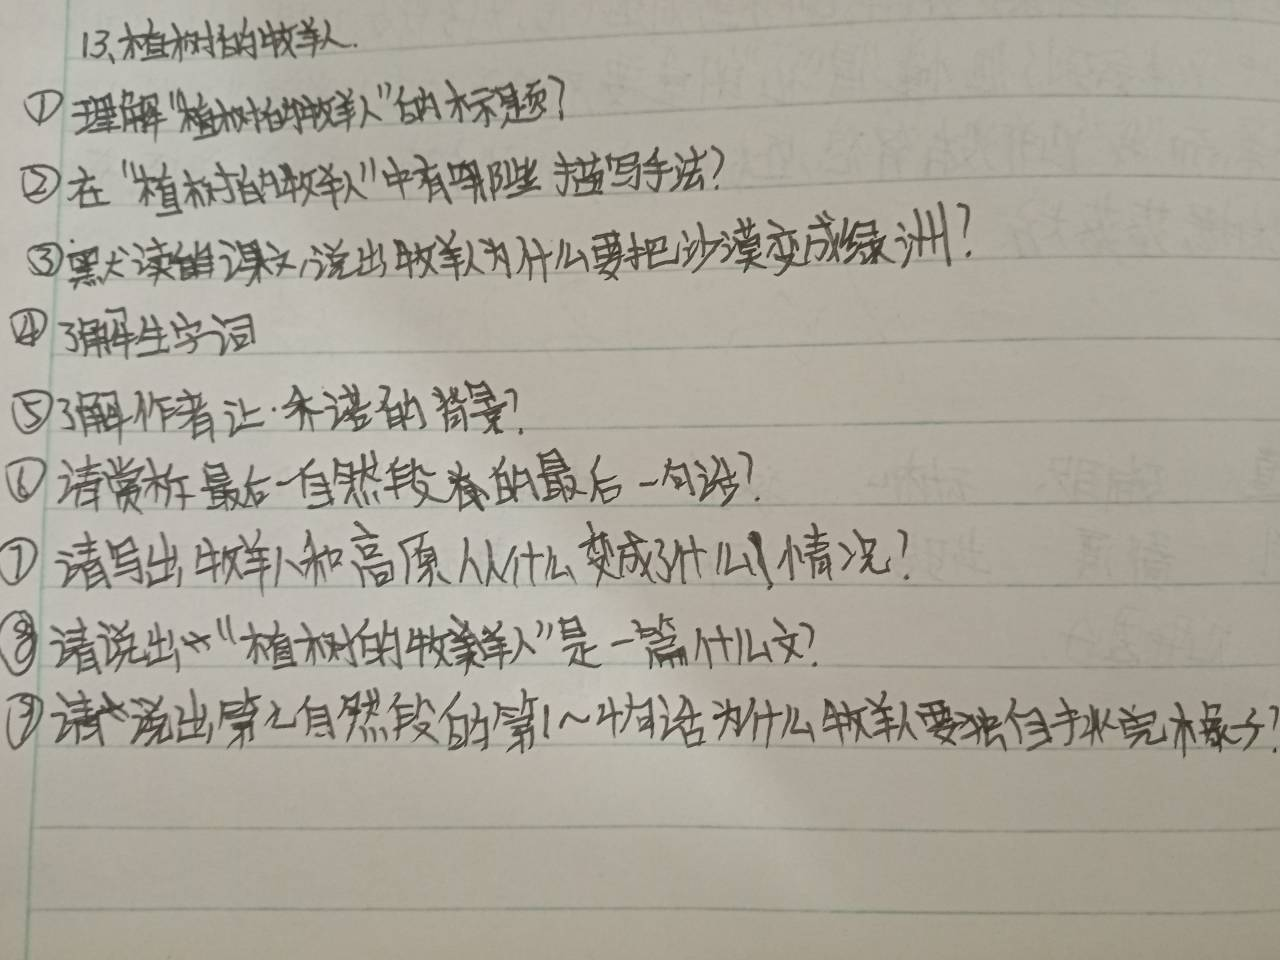 13、植树的牧羊人.
①理解"植树的牧羊人"的标题?
②在"植树的牧羊人"中有哪些描写手法?
③默读课文,说出牧羊人为什么要把沙漠变成绿洲?
④了解生字词
⑤了解作者让·乔诺的背景?
⑥请赏析最后一自然段的最后一句话?
⑦请写出牧羊人和高原从什么变成了什么情况?
⑧请说出"植树的牧羊人"是一篇什么文?
⑨请说出第七自然段的第1~4句话为什么牧羊人要独自挑完橡子?